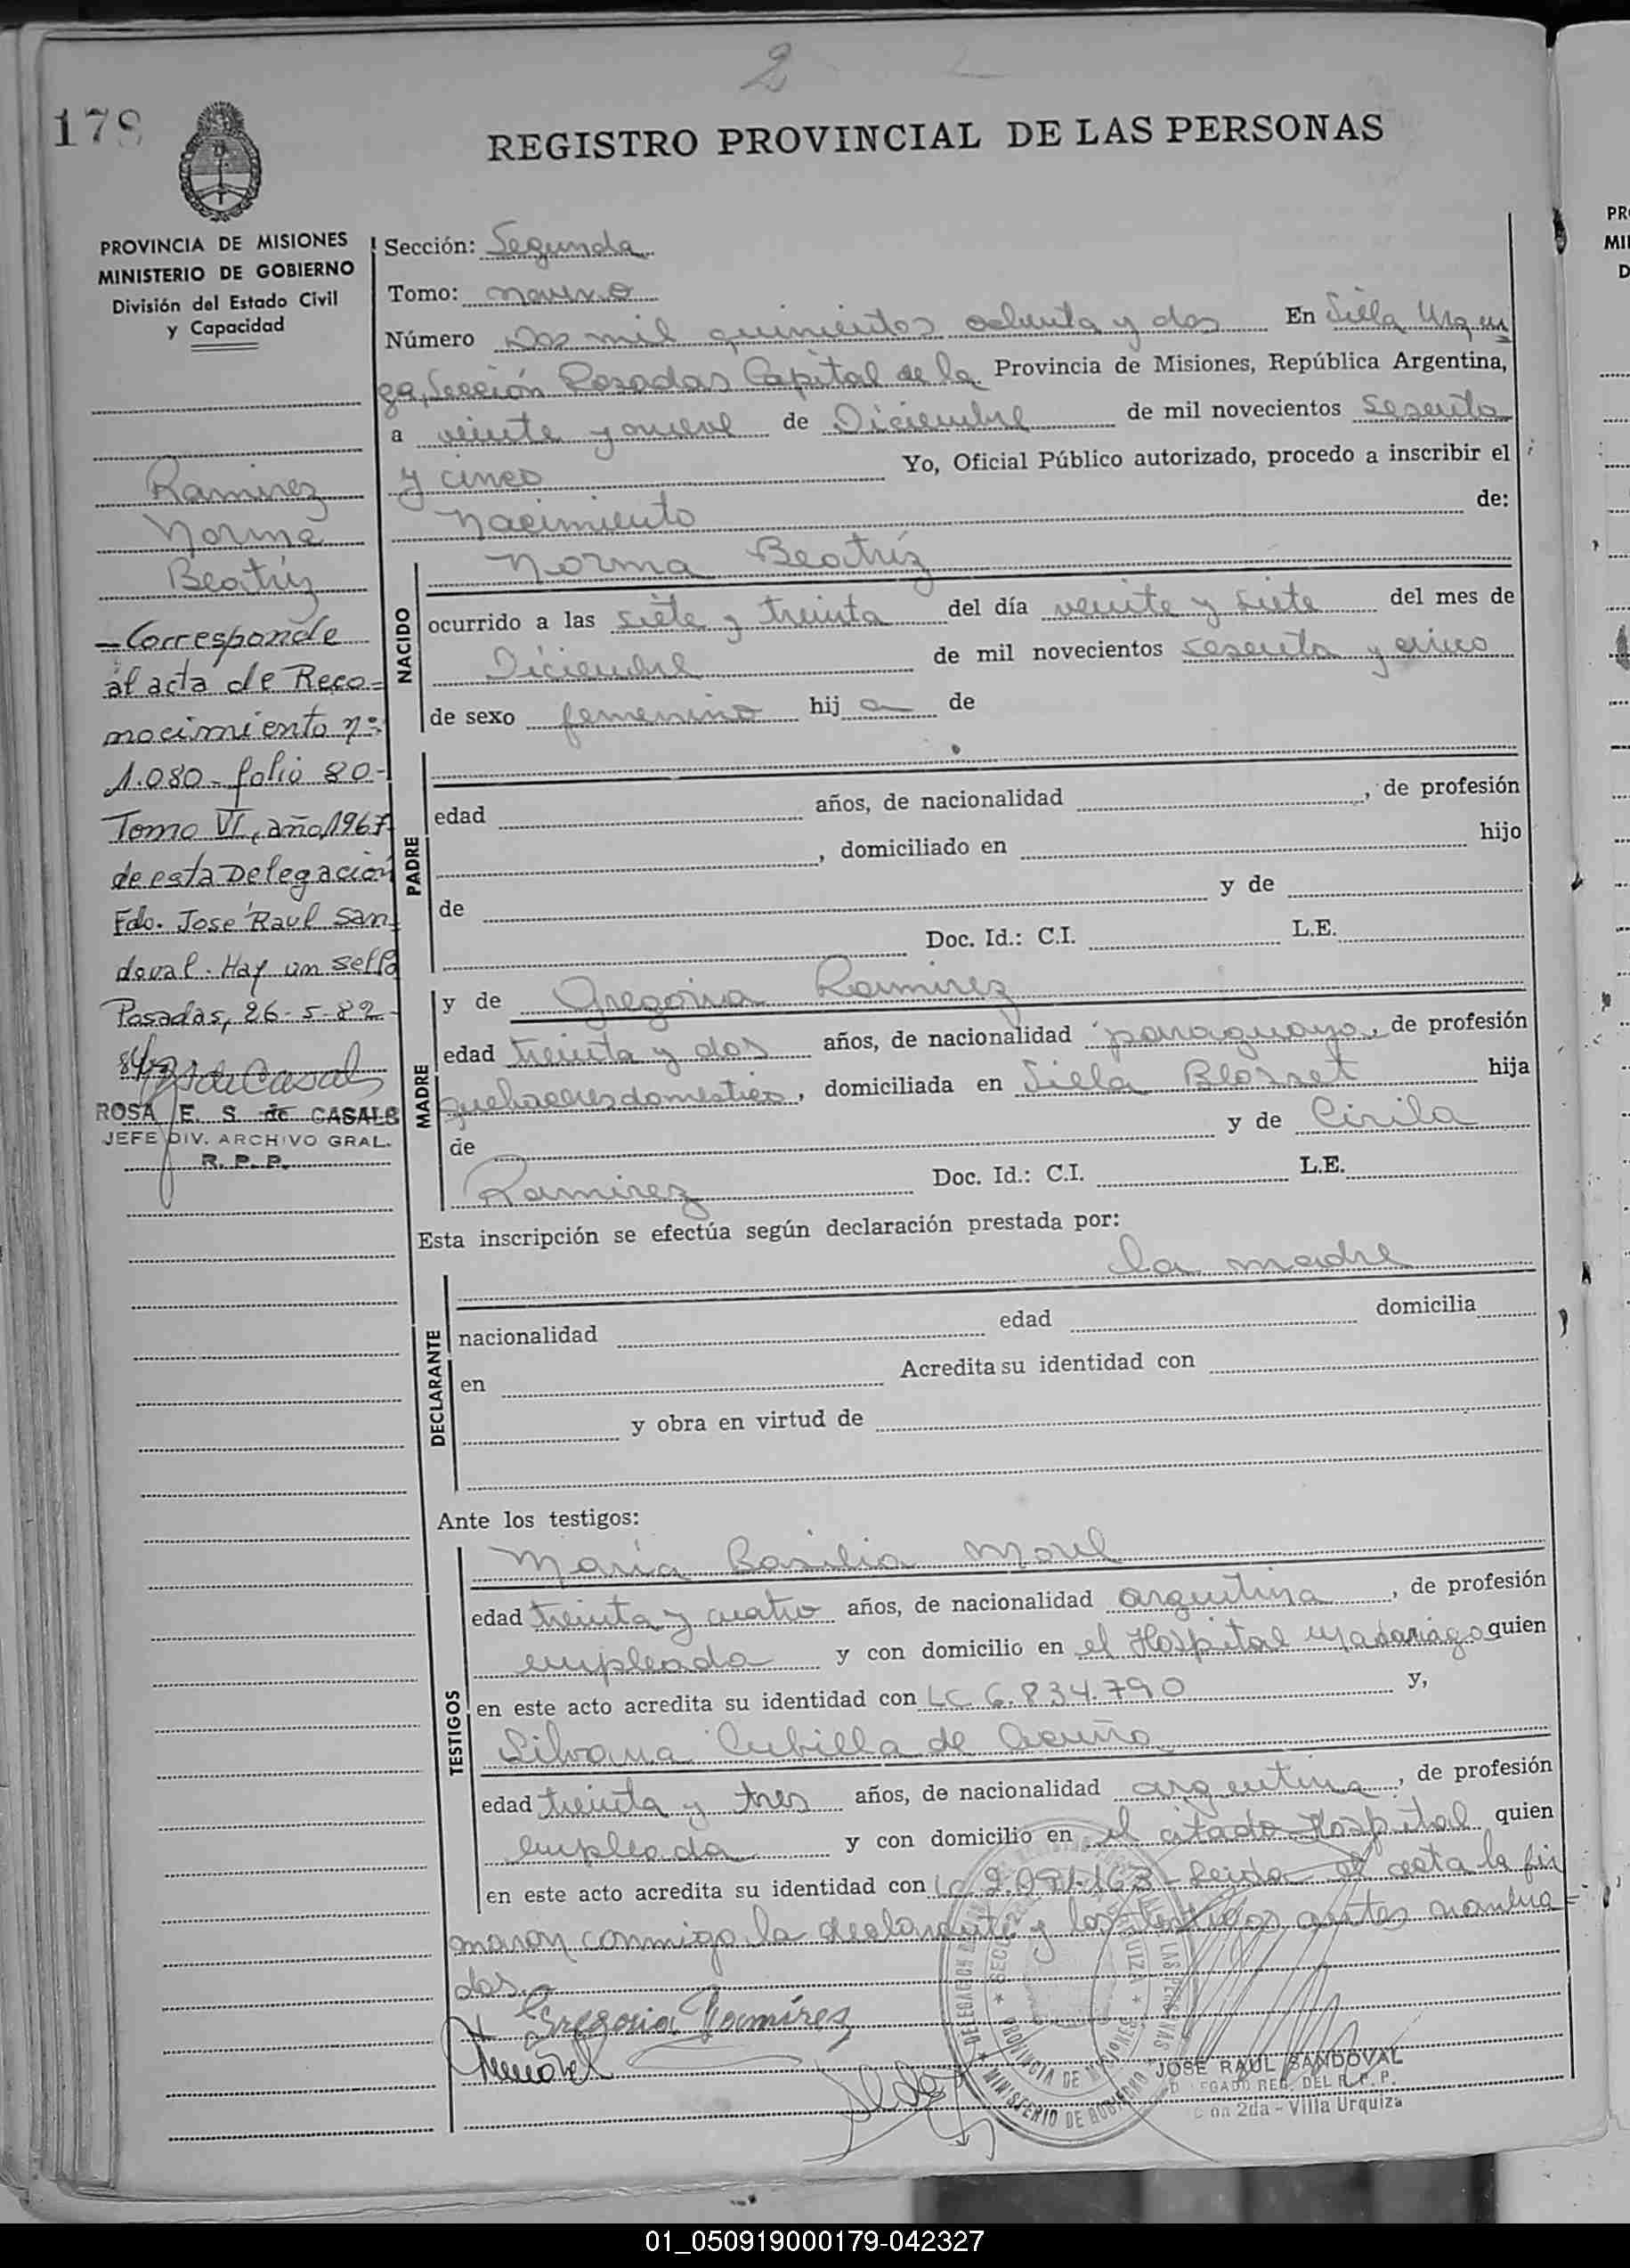 2
178
REGISTRO PROVINCIAL DE LAS PERSONAS
PROVINCIA DE MISIONES
MINISTERIO DE GOBIERNO
División del Estado Civil
y Capacidad
Ramirez
Norma
Beatriz
- Corresponde
al acta de Reco-
nocimiento nº
1.080 - folio 80-
Tomo VI, año 1967
de esta Delegación
Fdo. Jose Raul San
doval. Hay un sello
Posadas, 26-5-82-
ROSA E. S. de CASALS
JEFE DIV. ARCHIVO GRAL.
R. P. P.
Sección: Segunda
Tomo: noveno
Número Dos mil quinientos ochenta y dos En Villa Urqui
za, Sección Posadas Capital de la Provincia de Misiones, República Argentina,
a veinte y nueve de Diciembre de mil novecientos sesenta
y cinco Yo, Oficial Público autorizado, procedo a inscribir el
Nacimiento de:
NACIDO
Norma Beatriz
ocurrido a las siete y treinta del día veinte y siete del mes de
Diciembre de mil novecientos sesenta y cinco
de sexo femenino hij a de
PADRE
edad años, de nacionalidad , de profesión
, domiciliado en hijo
de y de
Doc. Id.: C.I. L.E.
MADRE
y de Gregoria Ramirez
edad treinta y dos años, de nacionalidad paraguaya, de profesión
quehaceres domesticos, domiciliada en Villa Blosset hija
de y de Cirila
Ramirez Doc. Id.: C.I. L.E.
Esta inscripción se efectúa según declaración prestada por:
DECLARANTE
la madre
nacionalidad edad domicilia
en Acredita su identidad con
y obra en virtud de
Ante los testigos:
TESTIGOS
María Basilia
edad treinta y cuatro años, de nacionalidad argentina, de profesión
empleada y con domicilio en el Hospital Madariaga quien
en este acto acredita su identidad con LC 6.834.790 y,
Silvana Cubilla de Acuña
edad treinta y tres años, de nacionalidad argentina, de profesión
empleada y con domicilio en el citado Hospital quien
en este acto acredita su identidad con LC - Leida el acta la fir
maron conmigo la declarante y los testigos antes nombra
dos.
Gregoria Ramírez
MINISTERIO DE GOBIERNO
PROVINCIA DE MISIONES
JOSE RAUL SANDOVAL
DELEGADO REG. DEL R. P. P.
2da - Villa Urquiza
01_050919000179-042327